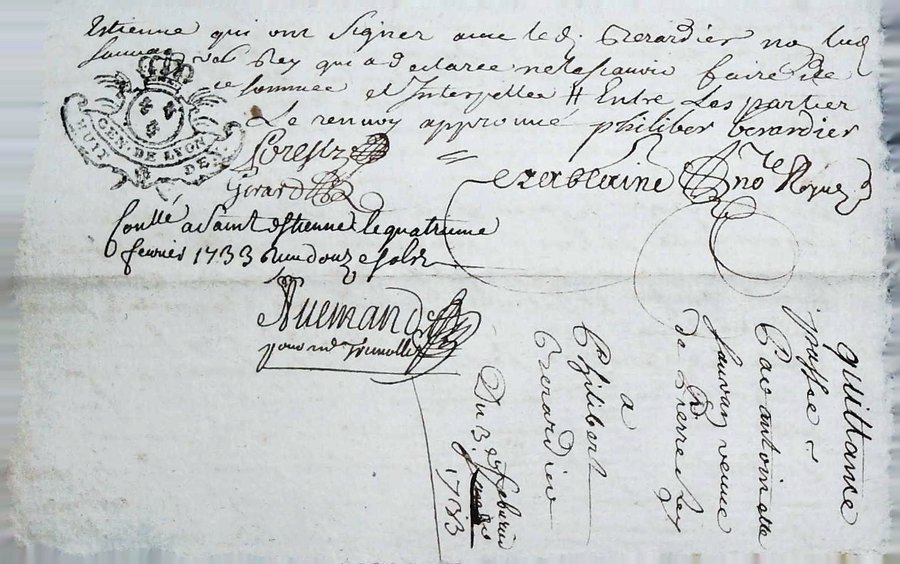 Estienne qui ont signer avec led. Berardier no led
sauvan
Rey qui a declaree ne le scavoir faire de
ce sommee et Interpellee # Entre Les partier
Le renvoy approuvé philiber berardier
GEN. DE LYON
HUIT DE
Forestz
Girard
Conllé a Saint Estienne le quatrieme
fevrier 1733 douze solz
no.re
pour
quittance
passee
Par antoinette
sauvan veuve
de Pierre Rey
a
Philibert
Berardier
Du 3.e feburier
1733